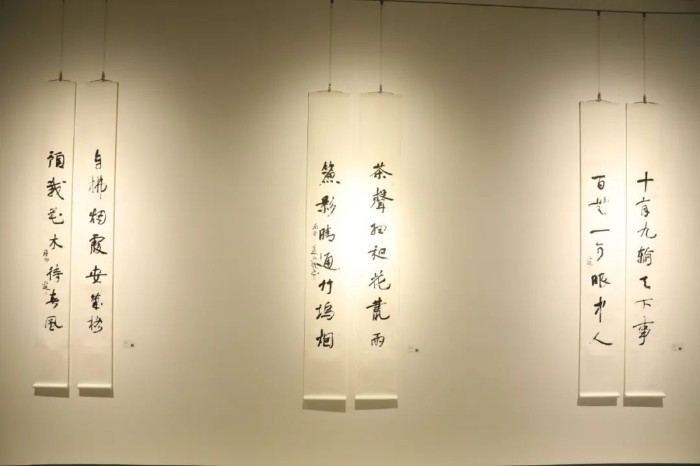 十有九輸天下事
百無一可眼中人
茶聲細起花叢雨
影通竹塢烟
自拂烟霞安筆格
預栽花木待春風